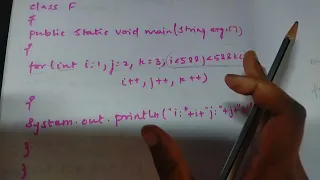 class F
{
public static void main(String arg[])
{
for(int i=1, j=2, k=3; i<5&& j<5&&k<
i++, j++, k++)
{
System.out.println("i:"+i+"j:"+j+"
}
}